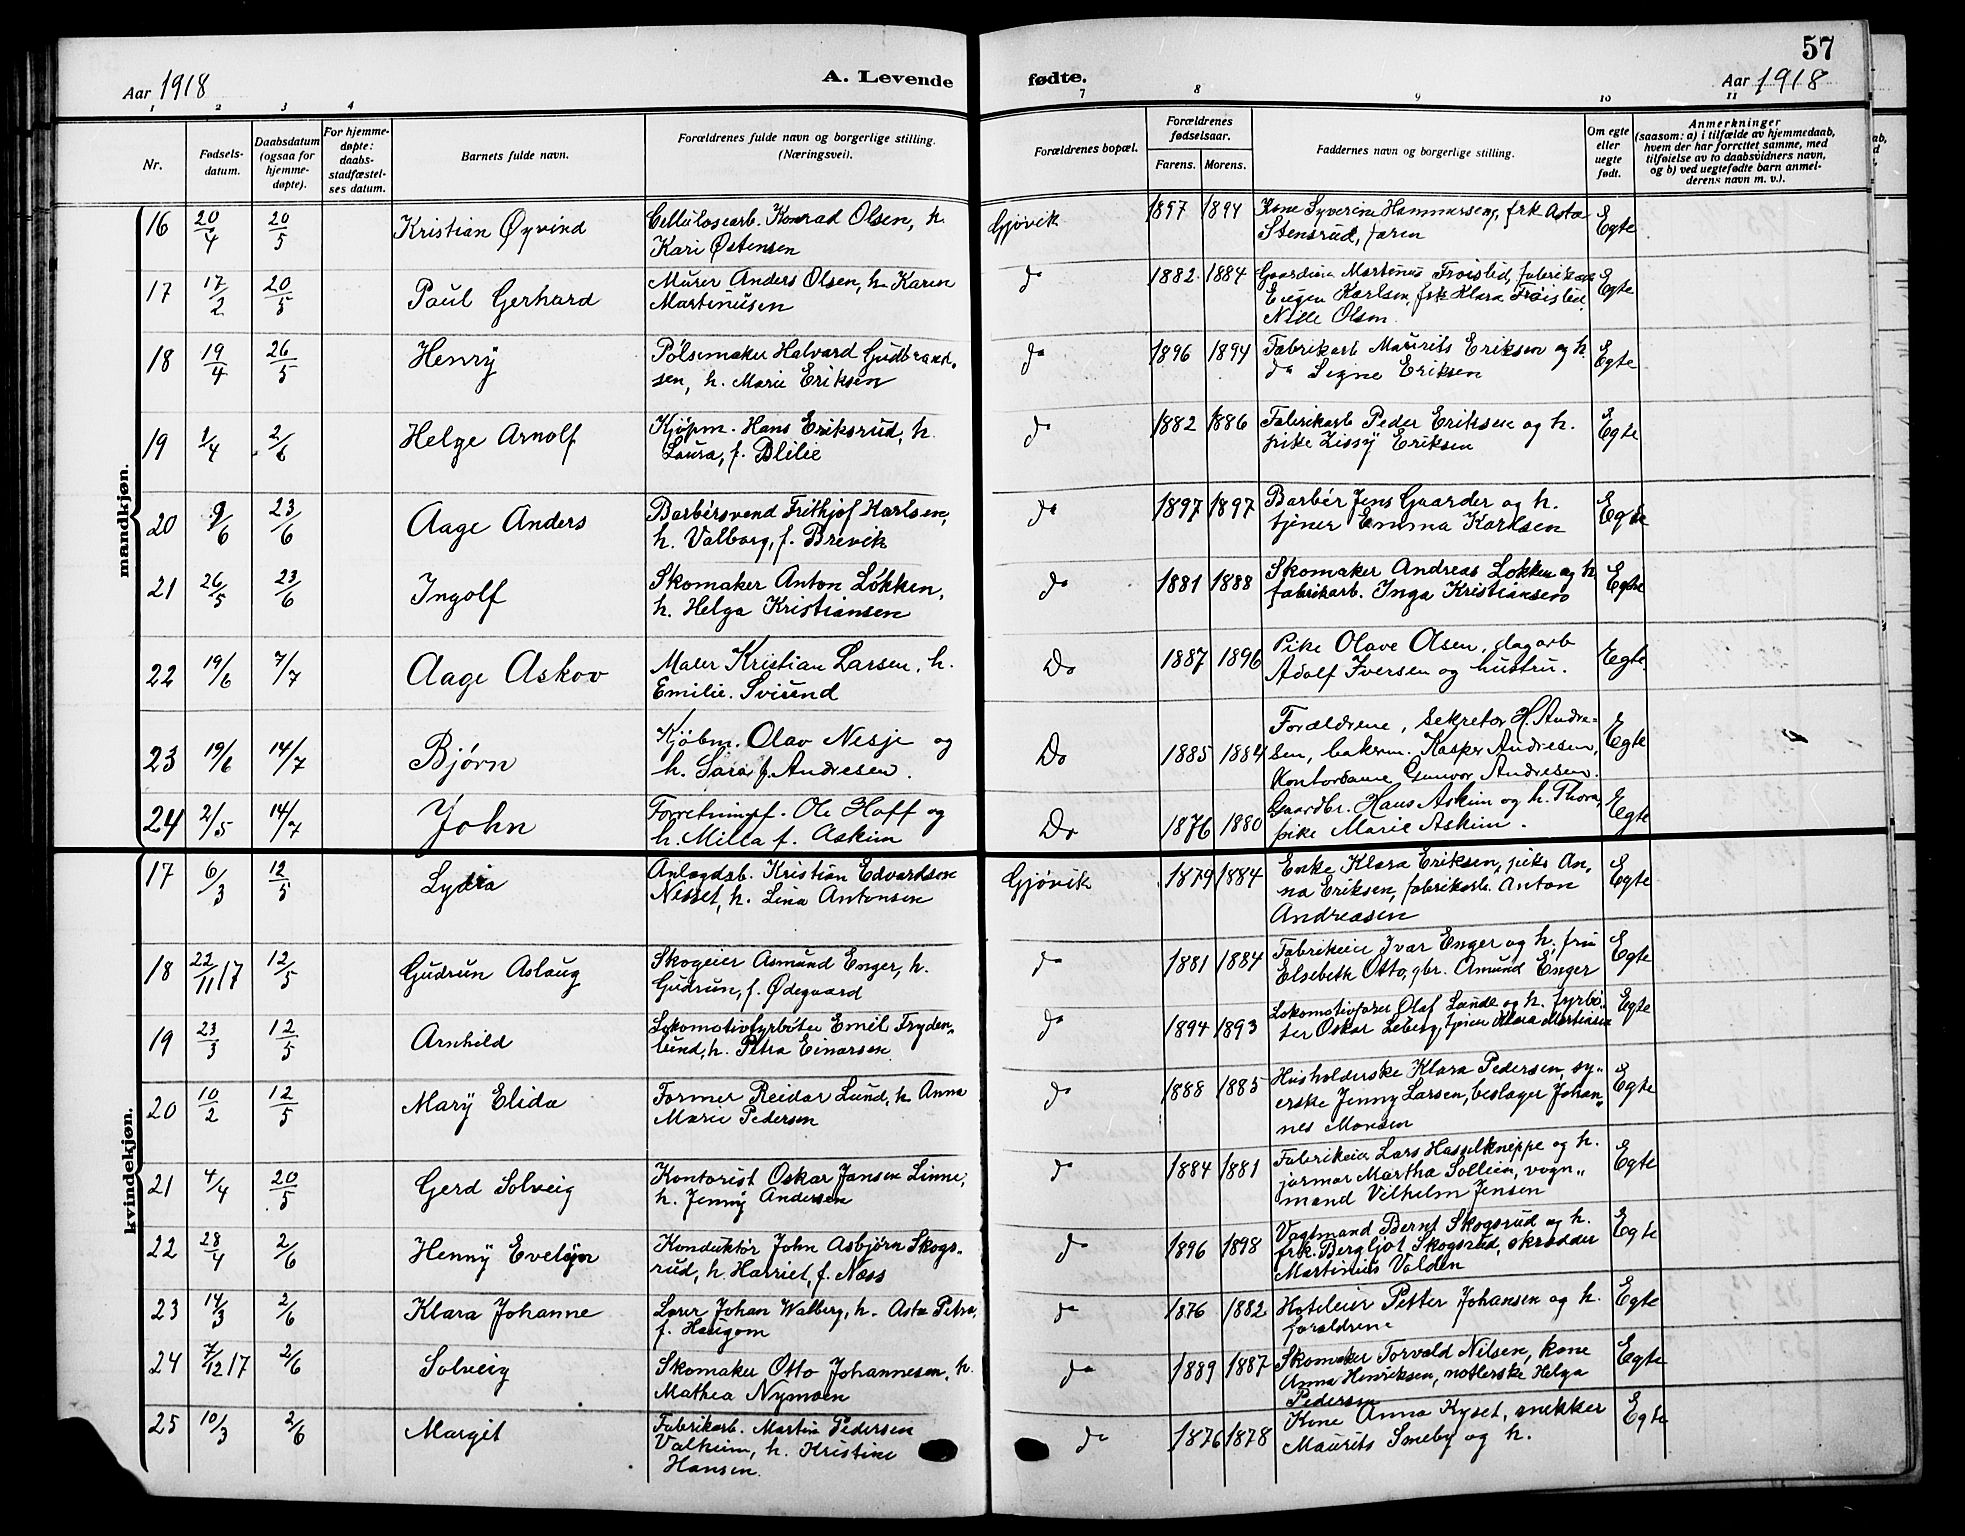 57
Aar 1918 A. Levende fødte. Aar 1918
1 2 3 4 7 8 9 10 11
Nr. Fødsels-datum. Daabsdatum (ogsaa for hjemme-døpte). For hjemme-døpte: daabs-stadfæstel-ses datum. Barnets fulde navn. Forældrenes fulde navn og borgerlige stilling. (Næringsvei). Forældrenes bopæl. Forældrenes fødselsaar. Farens. Morens. Faddernes navn og borgerlige stilling. Om egte eller uegte født. Anmerkninger (saasom: a) i tilfælde av hjemmedaab, hvem der har forrettet samme, med tilføielse av to daabsvidners navn, og b) ved uegtefødte barn anmel-derens navn m. v.).
mandkjøn.
16 20/4 20/5 Kristian Øyvind Cellulosearb. Konrad Olsen, h. Gjøvik 1897 1894 Kone Syverine Hammerseng, frk Asta Egte
Kari Østensen Stensrud, faren
17 17/2 20/5 Paul Gerhard Murer Anders Olsen, h. Karen do 1882 1884 Gaardeier Martinus Frøislid, fabrikarb Egte
Martinusen Eugen Karlsen, frk Klara Frøislid,
Nille Olsen
18 19/4 26/5 Henry Pølsemaker Halvard Gudbrand- do 1896 1894 Fabrikarb Maurits Eriksen og h. Egte
sen, h. Marie Eriksen do Signe Eriksen
19 1/4 2/6 Helge Arnolf Kjøpm. Hans Eriksrud, h. do 1882 1886 Fabrikarb Peder Eriksen og h. Egte
Laura, f. Blilie pike Lissy Eriksen
20 9/6 23/6 Aage Anders Barbérsvend Frithjof Karlsen, do 1897 1897 Barbér Jens Gaarder og h. Egte
h. Valborg, f. Brevik tjener Emma Karlsen
21 26/5 23/6 Ingolf Skomaker Anton Løkken, do 1881 1888 Skomaker Andreas Løkken og h Egte
h. Helga Kristiansen fabrikarb. Inga Kristiansen
22 19/6 7/7 Aage Askov Maler Kristian Larsen, h. Do 1887 1896 Pike Olave Olsen, dagarb Egte
Emilie Sviund Adolf Iversen og hustru.
23 19/6 14/7 Bjørn Kjøbm. Olav Nesje og Do 1885 1884 Forældrene, sekretær H. Andre- Egte
h. Sara f. Andresen. sen, bakerm. Kasper Andresen,
Kontordame Gunvor Andresen.
24 2/5 14/7 John Forretningsf. Ole Hoff og Do 1876 1880 Gaardbr. Hans Askim og h. Thora, Egte
h. Milla f. Askim pike Marie Askim.
kvindekjøn.
17 6/3 12/5 Lydia Anlagdsb. Kristian Edvardsen Gjøvik 1879 1884 Enke Klara Eriksen, pike An- Egte
Nesset, h. Lina Antonsen na Eriksen, fabrikarb. Anton
Andreasen
18 22/11 17 12/5 Gudrun Aslaug Skogeier Asmund Enger, h. do 1881 1884 Fabrikeier Ivar Enger og h. fru Egte
Gudrun, f. Ødegaard Elsebeth Otto, gbr. Amund Enger
19 23/3 12/5 Arnhild Lokomotivfyrbøter Emil Fryden- do 1894 1893 Lokomotivfører Olaf Lunde og h. fyrbø- Egte
lund, h. Petra Einarsen ter Oskar Leberg, tjener Klara Martinsen
20 10/2 12/5 Mary Elida Former Reidar Lund, h. Anna do 1888 1885 Husholderske Klara Pedersen, sy- Egte
Marie Pedersen erske Jenny Larsen, beslager Johan-
nes Monsen
21 4/4 20/5 Gerd Solveig Kontorist Oskar Jansen Linne, do 1884 1881 Fabrikeier Lars Hasselkneppe og h. Egte
h. Jenny Andersen jormor Martha Sollien, vogn-
mand Vilhelm Jensen
22 28/4 2/6 Henny Evelyn Konduktør John Asbjørn Skogs- do 1896 1898 Vagtmand Bernt Skogsrud og h. Egte
rud, h. Harriet, f. Næss frk. Bergljot Skogsrud, skrædder
Martinius Volden
23 14/3 2/6 Klara Johanne Lærer Johan Walberg, h. Asta Petra, do 1876 1882 Hoteleier Petter Johansen og h. Egte
f. Haugom forældrene
24 7/12 17 2/6 Solveig Skomaker Otto Johannesen, h. do 1889 1887 Skomaker Torvald Nilsen, kone Egte
Mathea Nymoen Anna Henriksen, notlerske Helga
Pedersen
25 10/3 2/6 Margit Fabrikarb. Martin Pedersen do 1876 1878 Kone Anna Kyset, snekker Egte
Valheim, h. Kristine Maurits Smeby og h.
Hansen.